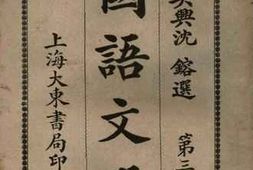 吳興沈鎔選 第三
國語文
上海大東書局印